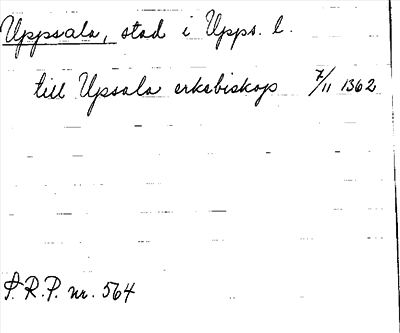 Uppsala, stad i Upps. l.
till Upsala erkebiskop 7/11 1362
S.R.P. nr. 564